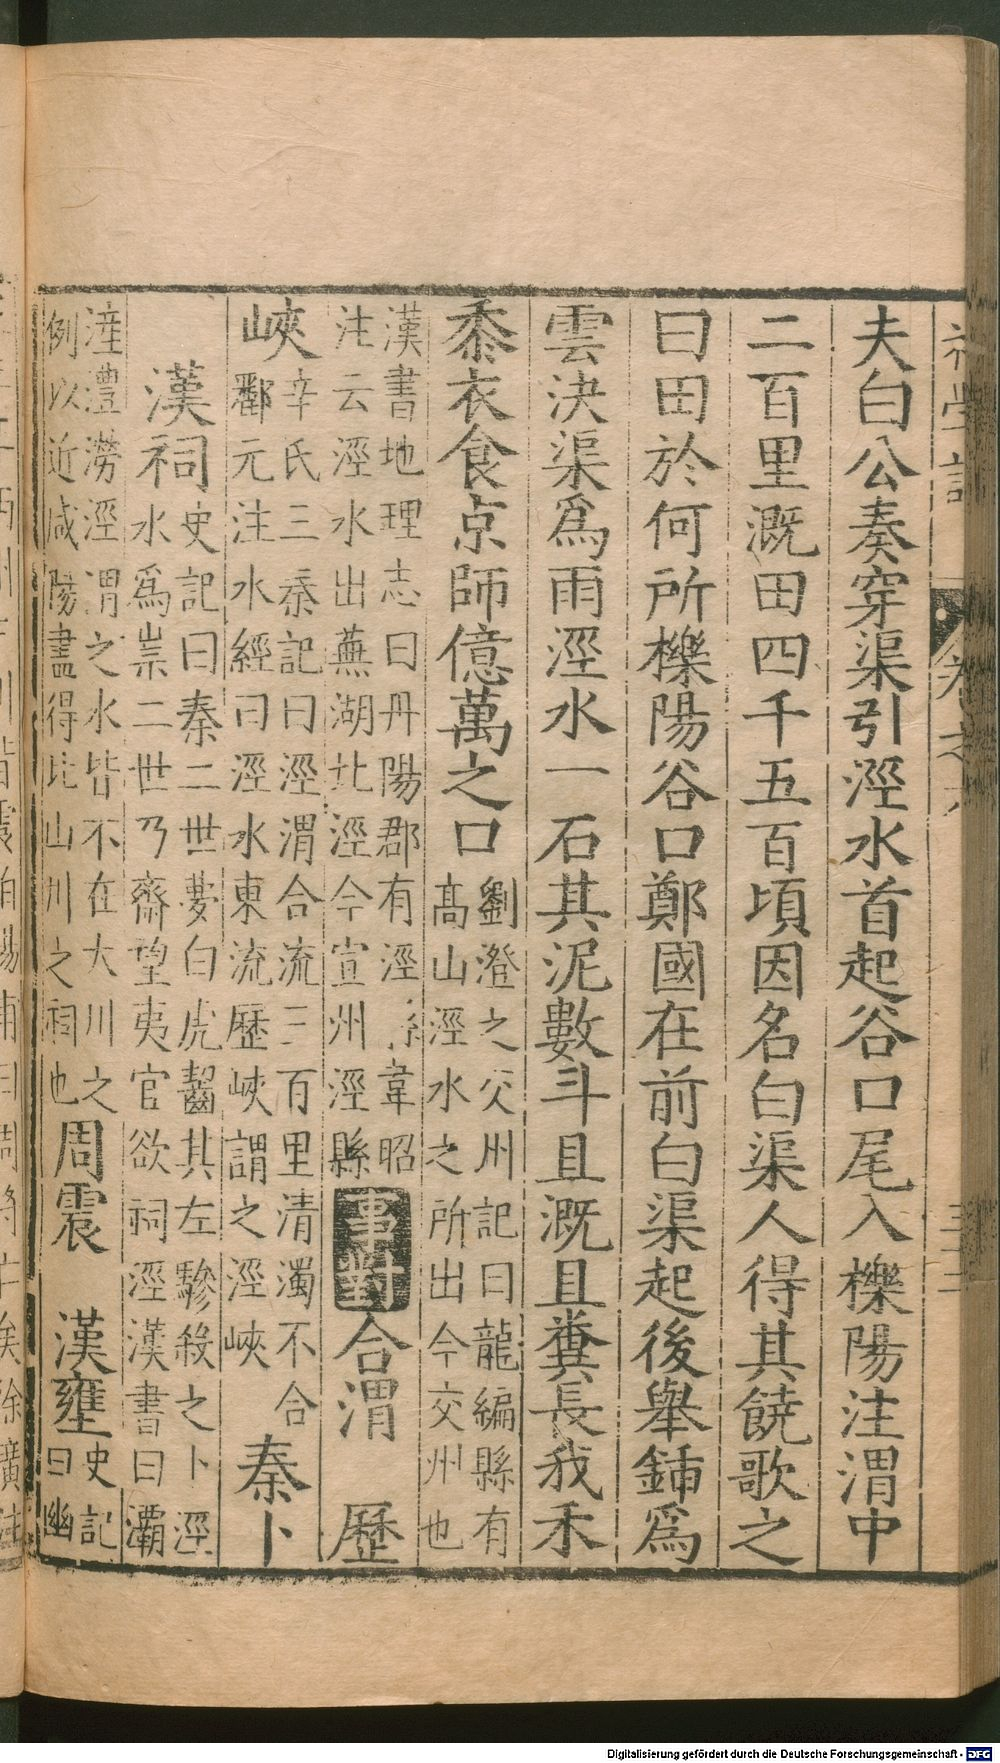 初學記 卷之六
夫白公奏穿渠引涇水首起谷口尾入櫟陽注渭中
二百里溉田四千五百頃因名白渠人得其饒歌之
曰田於何所櫟陽谷口鄭國在前白渠起後舉鍤爲
雲決渠爲雨涇水一石其泥數斗且溉且糞長我禾
黍衣食京師億萬之口
劉澄之交州記曰龍編縣有
高山涇水之所出今交州也
漢書地理志曰丹陽郡有涇縣韋昭
注云涇水出蕪湖北涇今宣州涇縣
事對
合渭 歷
峽
辛氏三秦記曰涇渭合流三百里清濁不合
酈元注水經曰涇水東流歷峽謂之涇峽
秦卜
漢祠
史記曰秦二世夢白虎齧其左驂殺之卜涇
水爲祟二世乃齋望夷宮欲祠涇漢書曰灞
滻灃澇涇渭之水皆不在大川之
例以近咸陽盡得比山川之祠也
周震 漢壅
史記
曰幽
Digitalisierung gefördert durch die Deutsche Forschungsgemeinschaft - DFG